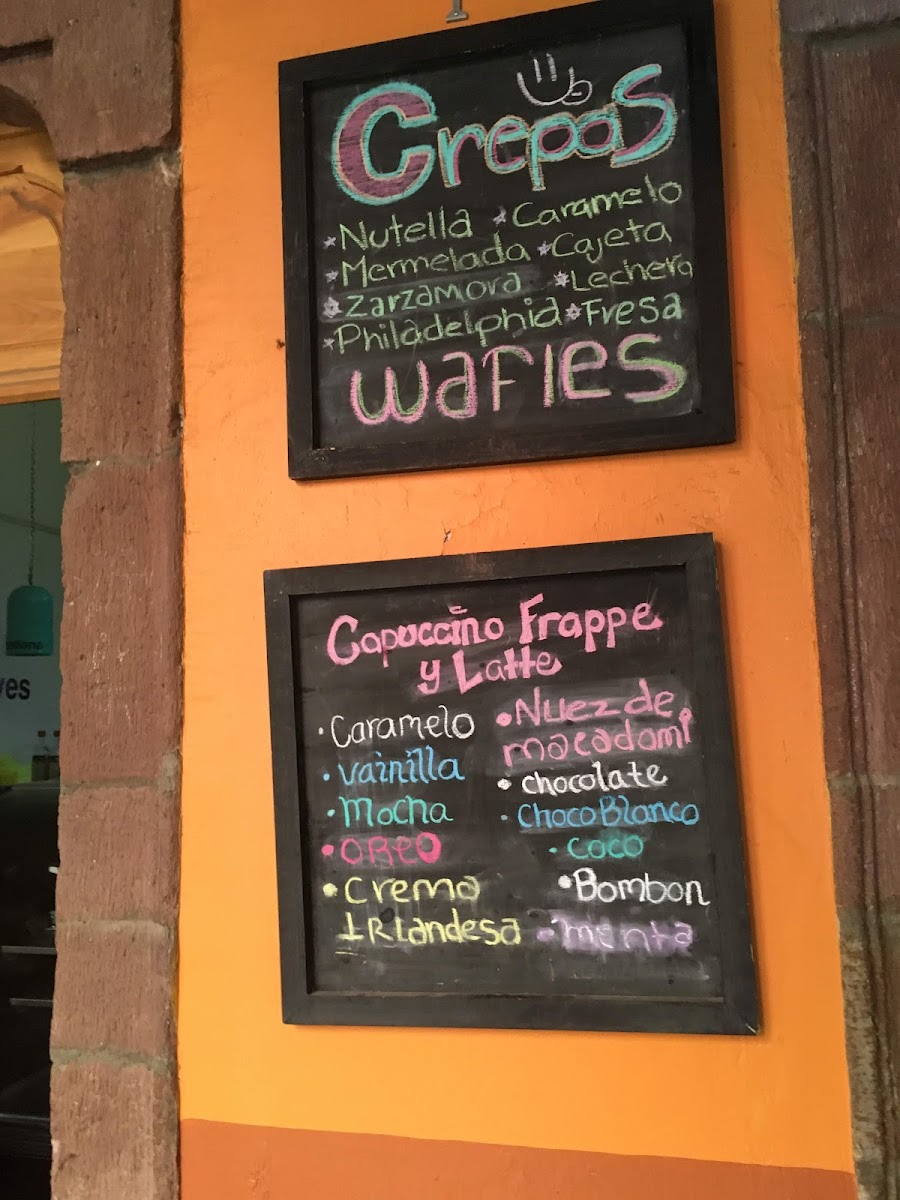 Crepas
* Nutella * Caramelo
* Mermelada * Cajeta
* Zarzamora * Lechera
* Philadelphia * Fresa
Wafles
Capuccino Frappe
y Latte
• Caramelo
• Vainilla
• Mocha
• OREO
• Crema
IRLandesa
• Nuez de
macadami
• chocolate
• ChocoBlanco
• coco
• Bombon
- menta